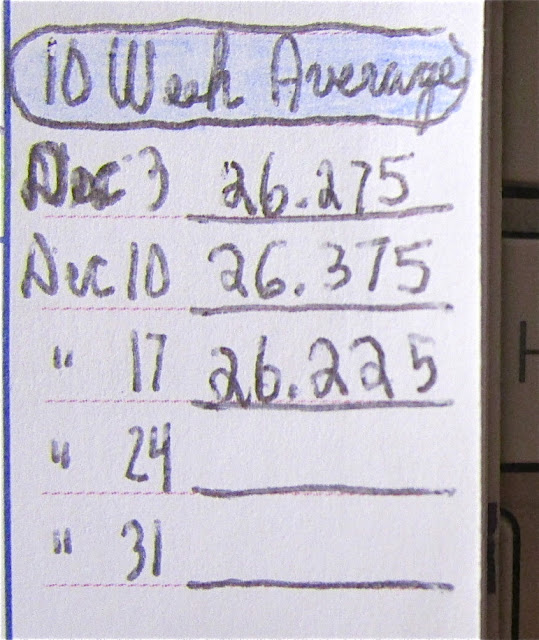 10 Week Average
Dec 3 26.275
Dec 10 26.375
" 17 26.225
" 24
" 31
H